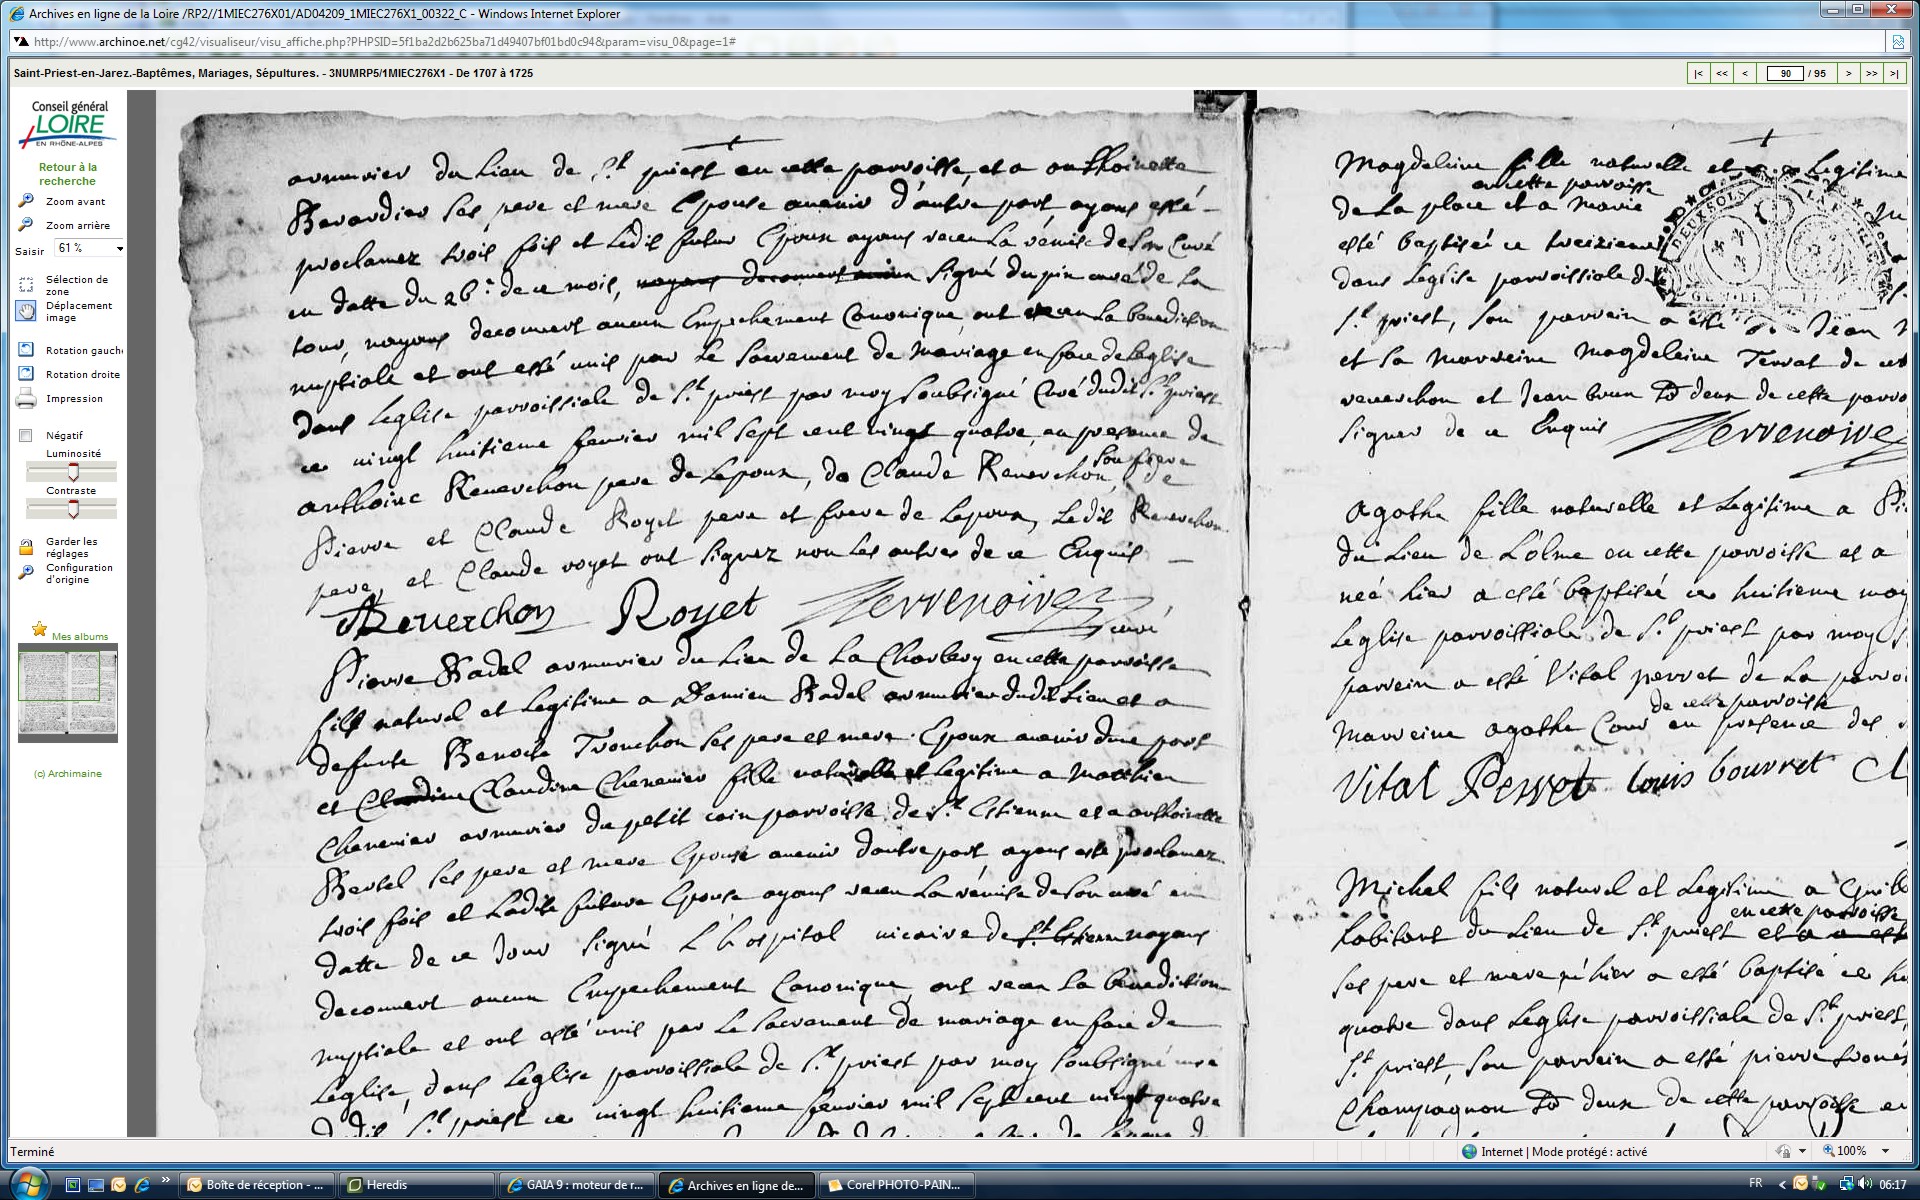 Archives en ligne de la Loire /RP2//1MIEC276X01/AD04209_1MIEC276X1_00322_C - Windows Internet Explorer
http://www.archinoe.net/cg42/visualiseur/visu_affiche.php?PHPSID=5f1ba2d2b625ba71d49407bf01bd0c94&param=visu_0&page=1#
Saint-Priest-en-Jarez.-Baptêmes, Mariages, Sépultures. - 3NUMRP5/1MIEC276X1 - De 1707 à 1725
|< << < 90 / 95 > >> >|
Conseil général
LOIRE
EN RHÔNE-ALPES
Retour à la
recherche
Zoom avant
Zoom arrière
Saisir 61 %
Sélection de
zone
Déplacement
image
Rotation gauch
Rotation droite
Impression
Négatif
Luminosité
Contraste
Garder les
réglages
Configuration
d'origine
Mes albums
(c) Archimaine
armurier du Lieu de St priest en cette parroisse, et a anthoinette
Berardier ses pere et mere Epouse avenir d'autre part ayans esté
proclamez trois fois et Ledit futur Epoux ayans receu La remise de son Curé
en datte du 26e de ce mois, signé dupin curé de La
tour, nayans decouvert aucun Empechement Canonique, ont receu La benediction
nuptiale et ont esté unis par Le Sacrement de Mariage en face de Leglise
dans Leglise parroissiale de St priest par moy Soubsigné Curé dudit St priest
ce vingt huitieme fevrier mil sept cent vingt quatre, en presence de
anthoine Reverchon pere de Lepoux, de Claude Reverchon, son frere de
Pierre et Claude Royet pere et frere de Lepoux, Ledit Reverchon
pere, et Claude royet ont signez non Les autres de ce Enquis
Reverchon Royet Terrenoire curé
Pierre Badel armurier du Lieu de La Charlery en cette parroisse
fils naturel et Legitime a Damien Badel armurier dudit Lieu et a
defunte Benoite Tronchon ses pere et mere Epoux avenir dune part
et Claudine Claudine Chevenier fille naturelle et Legitime a Matthieu
Chevenier armurier du petit coin parroisse de St Estienne et a anthoinette
ses pere et mere Epouse avenir dautre part, ayans esté proclamez
trois fois et Ladite future Epouse ayans receu La remise de son curé en
datte de ce Jour signé L'hospital vicaire de St Estienne nayans
decouvert aucun Empechement Canonique, ont receu La benediction
nuptiale et ont esté unis par Le Sacrement de mariage en face de
Leglise, dans Leglise parroissiale de St priest par moy Soubsigné curé
dudit St priest ce vingt huitieme fevrier mil sept cent vingt quatre
Magdeleine fille naturelle et Legitime
en cette parroisse
de La place et a Marie
esté baptisée ce treizieme
dans Leglise parroissiale de
St priest, son parrein a esté Jean
et sa Marreine Magdeleine Terrat de cet
reverchon et Jean brun deux de cette parro
signer de ce Enquis Terrenoire
DEUX SOLS
agathe fille naturelle et Legitime a Pi
du Lieu de Lolme en cette parroisse et a
neé hier a esté baptisée ce huitieme may
Leglise parroissiale de St priest par moy S
parrein a esté Vital perret de La parroi
de cette parroisse
Marreine agathe Cour en presence des
Vital Perret Louis bouvret
Michel fils naturel et Legitime a
en cette parroisse
habitant du Lieu de St priest et a
ses pere et mere né hier a esté baptisé ce
quatre dans Leglise parroissiale de St priest,
St priest, Son parrein a esté pierre
Champagnon deux de cette parroisse
Terminé
Internet | Mode protégé : activé
100%
Boîte de réception - ...
Heredis
GAIA 9 : moteur de r...
Archives en ligne de...
Corel PHOTO-PAIN...
FR
06:17